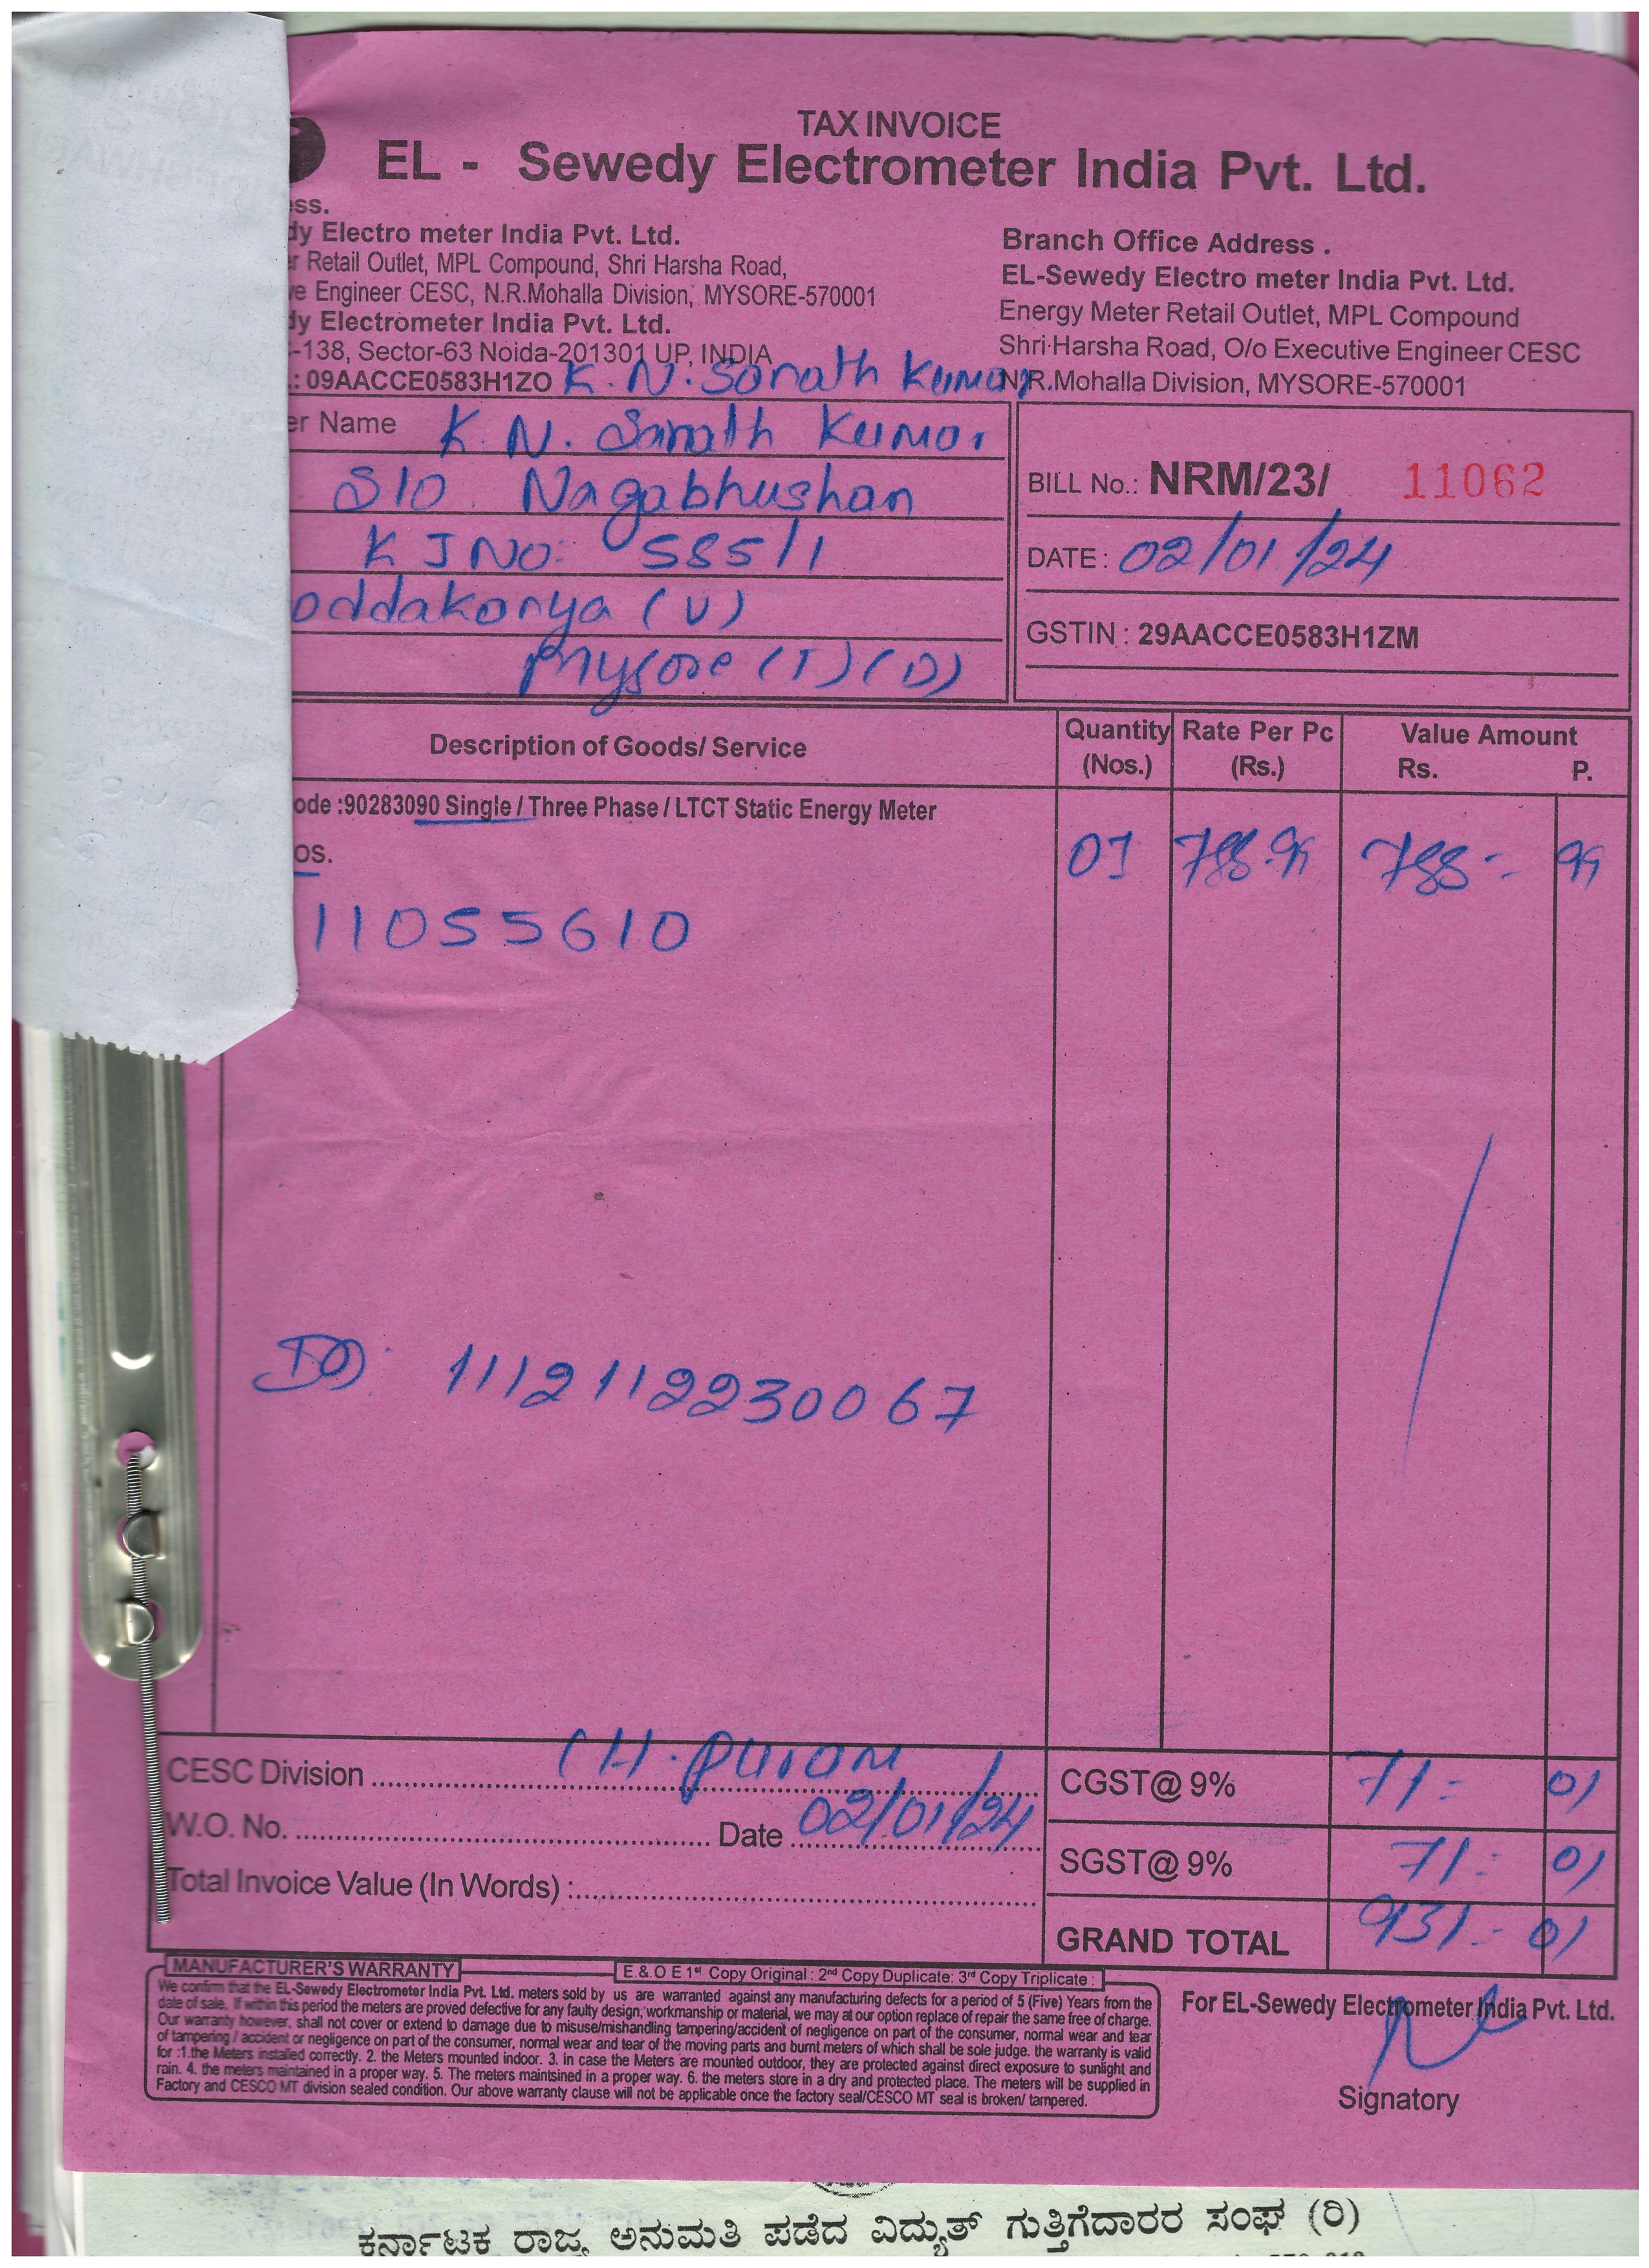 TAX INVOICE
EL - Sewedy Electrometer India Pvt. Ltd.
ess.
dy Electro meter India Pvt. Ltd.
r Retail Outlet, MPL Compound, Shri Harsha Road,
ve Engineer CESC, N.R.Mohalla Division, MYSORE-570001
dy Electrometer India Pvt. Ltd.
-138, Sector-63 Noida-201301 UP, INDIA
.: 09AACCE0583H1ZO K. N. Sarath Kumar.
Branch Office Address .
EL-Sewedy Electro meter India Pvt. Ltd.
Energy Meter Retail Outlet, MPL Compound
Shri Harsha Road, O/o Executive Engineer CESC
N.R.Mohalla Division, MYSORE-570001
er Name K. N. Sarath Kumar
S/O. Nagabhushan
K J NO: 585/1
oddakanya (V)
Mysore (T) (D)
BILL No.: NRM/23/ 11062
DATE : 02/01/24
GSTIN : 29AACCE0583H1ZM
Description of Goods/ Service Quantity (Nos.) Rate Per Pc (Rs.) Value Amount Rs. P.
ode :90283090 Single / Three Phase / LTCT Static Energy Meter
os. 01 788.99 788 - 99
11055610
1112112230067
CESC Division CH. Puram
W.O. No. Date 02/01/24
Total Invoice Value (In Words) :
CGST@ 9% 71 - 01
SGST@ 9% 71 - 01
GRAND TOTAL 931 - 01
MANUFACTURER'S WARRANTY E. & O E 1st Copy Original : 2nd Copy Duplicate: 3rd Copy Triplicate :
We confirm that the EL-Sewedy Electrometer India Pvt. Ltd. meters sold by us are warranted against any manufacturing defects for a period of 5 (Five) Years from the
date of sale. If within this period the meters are proved defective for any faulty design, workmanship or material, we may at our option replace of repair the same free of charge.
Our warranty however, shall not cover or extend to damage due to misuse/mishandling tampering/accident of negligence on part of the consumer, normal wear and tear
of tampering / accident or negligence on part of the consumer, normal wear and tear of the moving parts and burnt meters of which shall be sole judge. the warranty is valid
for :1.the Meters installed correctly. 2. the Meters mounted indoor. 3. in case the Meters are mounted outdoor, they are protected against direct exposure to sunlight and
rain. 4. the meters maintained in a proper way. 5. The meters maintsined in a proper way. 6. the meters store in a dry and protected place. The meters will be supplied in
Factory and CESCO MT division sealed condition. Our above warranty clause will not be applicable once the factory seal/CESCO MT seal is broken/ tampered.
For EL-Sewedy Electrometer India Pvt. Ltd.
Signatory
ಕರ್ನಾಟಕ ರಾಜ್ಯ ಅನುಮತಿ ಪಡೆದ ವಿದ್ಯುತ್ ಗುತ್ತಿಗೆದಾರರ ಸಂಘ (ರಿ)